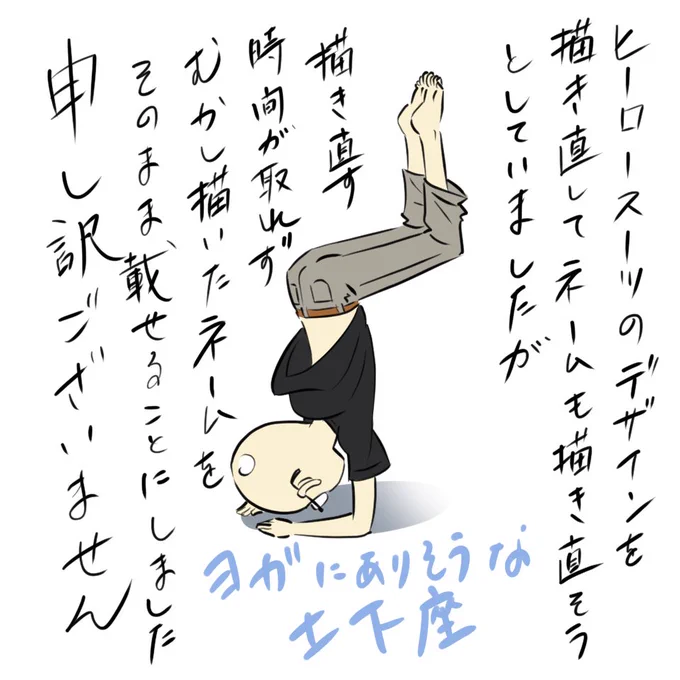 ヒーロースーツのデザインを
描き直してネームも描き直そう
としていましたが
描き直す
時間が取れず
むかし描いたネームを
そのまま、載せることにしました
申し訳ございません
ヨガにありそうな
土下座